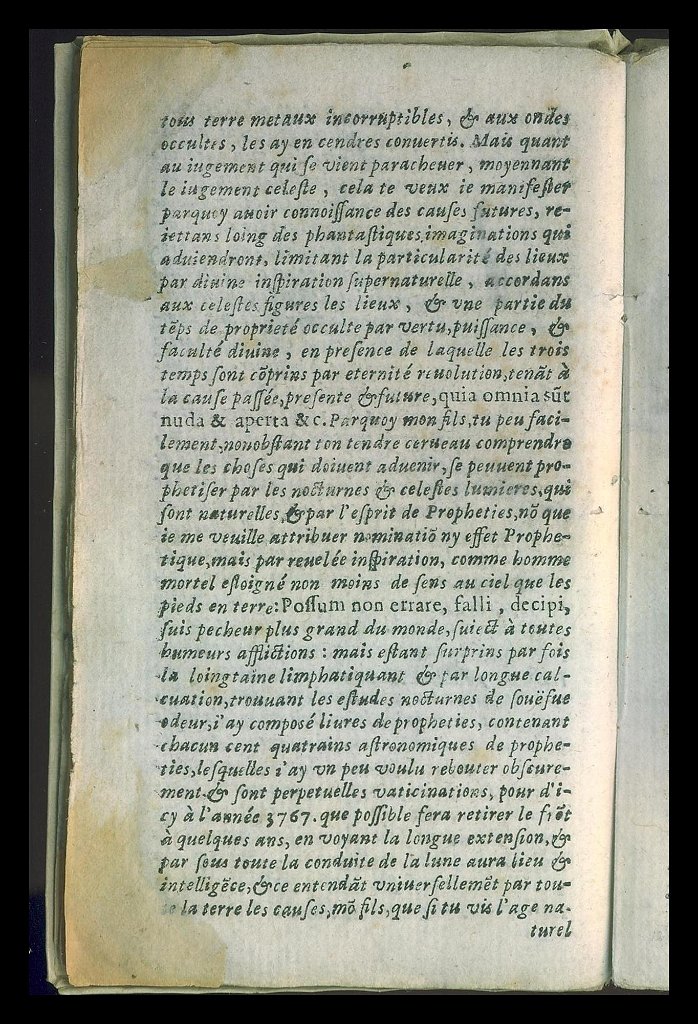 tous terre metaux incorruptibles, & aux ondes
occultes, les ay en cendres conuertis. Mais quant
au iugement qui ſe vient paracheuer, moyennant
le iugement celeſte, cela te veux ie manifeſter
parquoy auoir connoiſſance des cauſes futures, re-
iettans loing des phantaſtiques imaginations qui
aduiendront, limitant la particularité des lieux
par diuine inſpiration ſupernaturelle, accordans
aux celeſtes figures les lieux, & vne partie du
tẽps de proprieté occulte par vertu, puiſſance, &
faculté diuine, en preſence de laquelle les trois
temps ſont cõprins par eternité reuolution, tenãt à
la cauſe paſſée, preſente & future, quia omnia sũt
nuda & aperta &c. Parquoy mon fils, tu peu faci-
lement, nonobſtant ton tendre cerueau comprendre
que les choſes qui doiuent aduenir, ſe peuuent pro-
phetiſer par les nocturnes & celeſtes lumieres, qui
ſont naturelles, & par l'eſprit de Propheties, nõ que
ie me veuille attribuer nominatiõ ny effet Prophe-
tique, mais par reuelée inſpiration, comme homme
mortel eſloigné non moins de ſens au ciel que les
pieds en terre: Poſſum non errare, falli, decipi,
ſuis pecheur plus grand du monde, ſuiect à toutes
humeurs afflictions: mais eſtant ſurprins par fois
la loingtaine limphatiquant & par longue cal-
cuation, trouuant les eſtudes nocturnes de ſouëfue
odeur, i'ay compoſé liures de propheties, contenant
chacun cent quatrains aſtronomiques de prophe-
ties, leſquelles i'ay vn peu voulu rebouter obſcure-
ment & ſont perpetuelles vaticinations, pour d'i-
cy à l'année 3767. que poſſible fera retirer le frõt
à quelques ans, en voyant la longue extenſion, &
par ſous toute la conduite de la lune aura lieu &
intelligẽce, & ce entendãt vniuerſellemẽt par tou-
te la terre les cauſes, mõ fils, que ſi tu vis l'age na-
turel